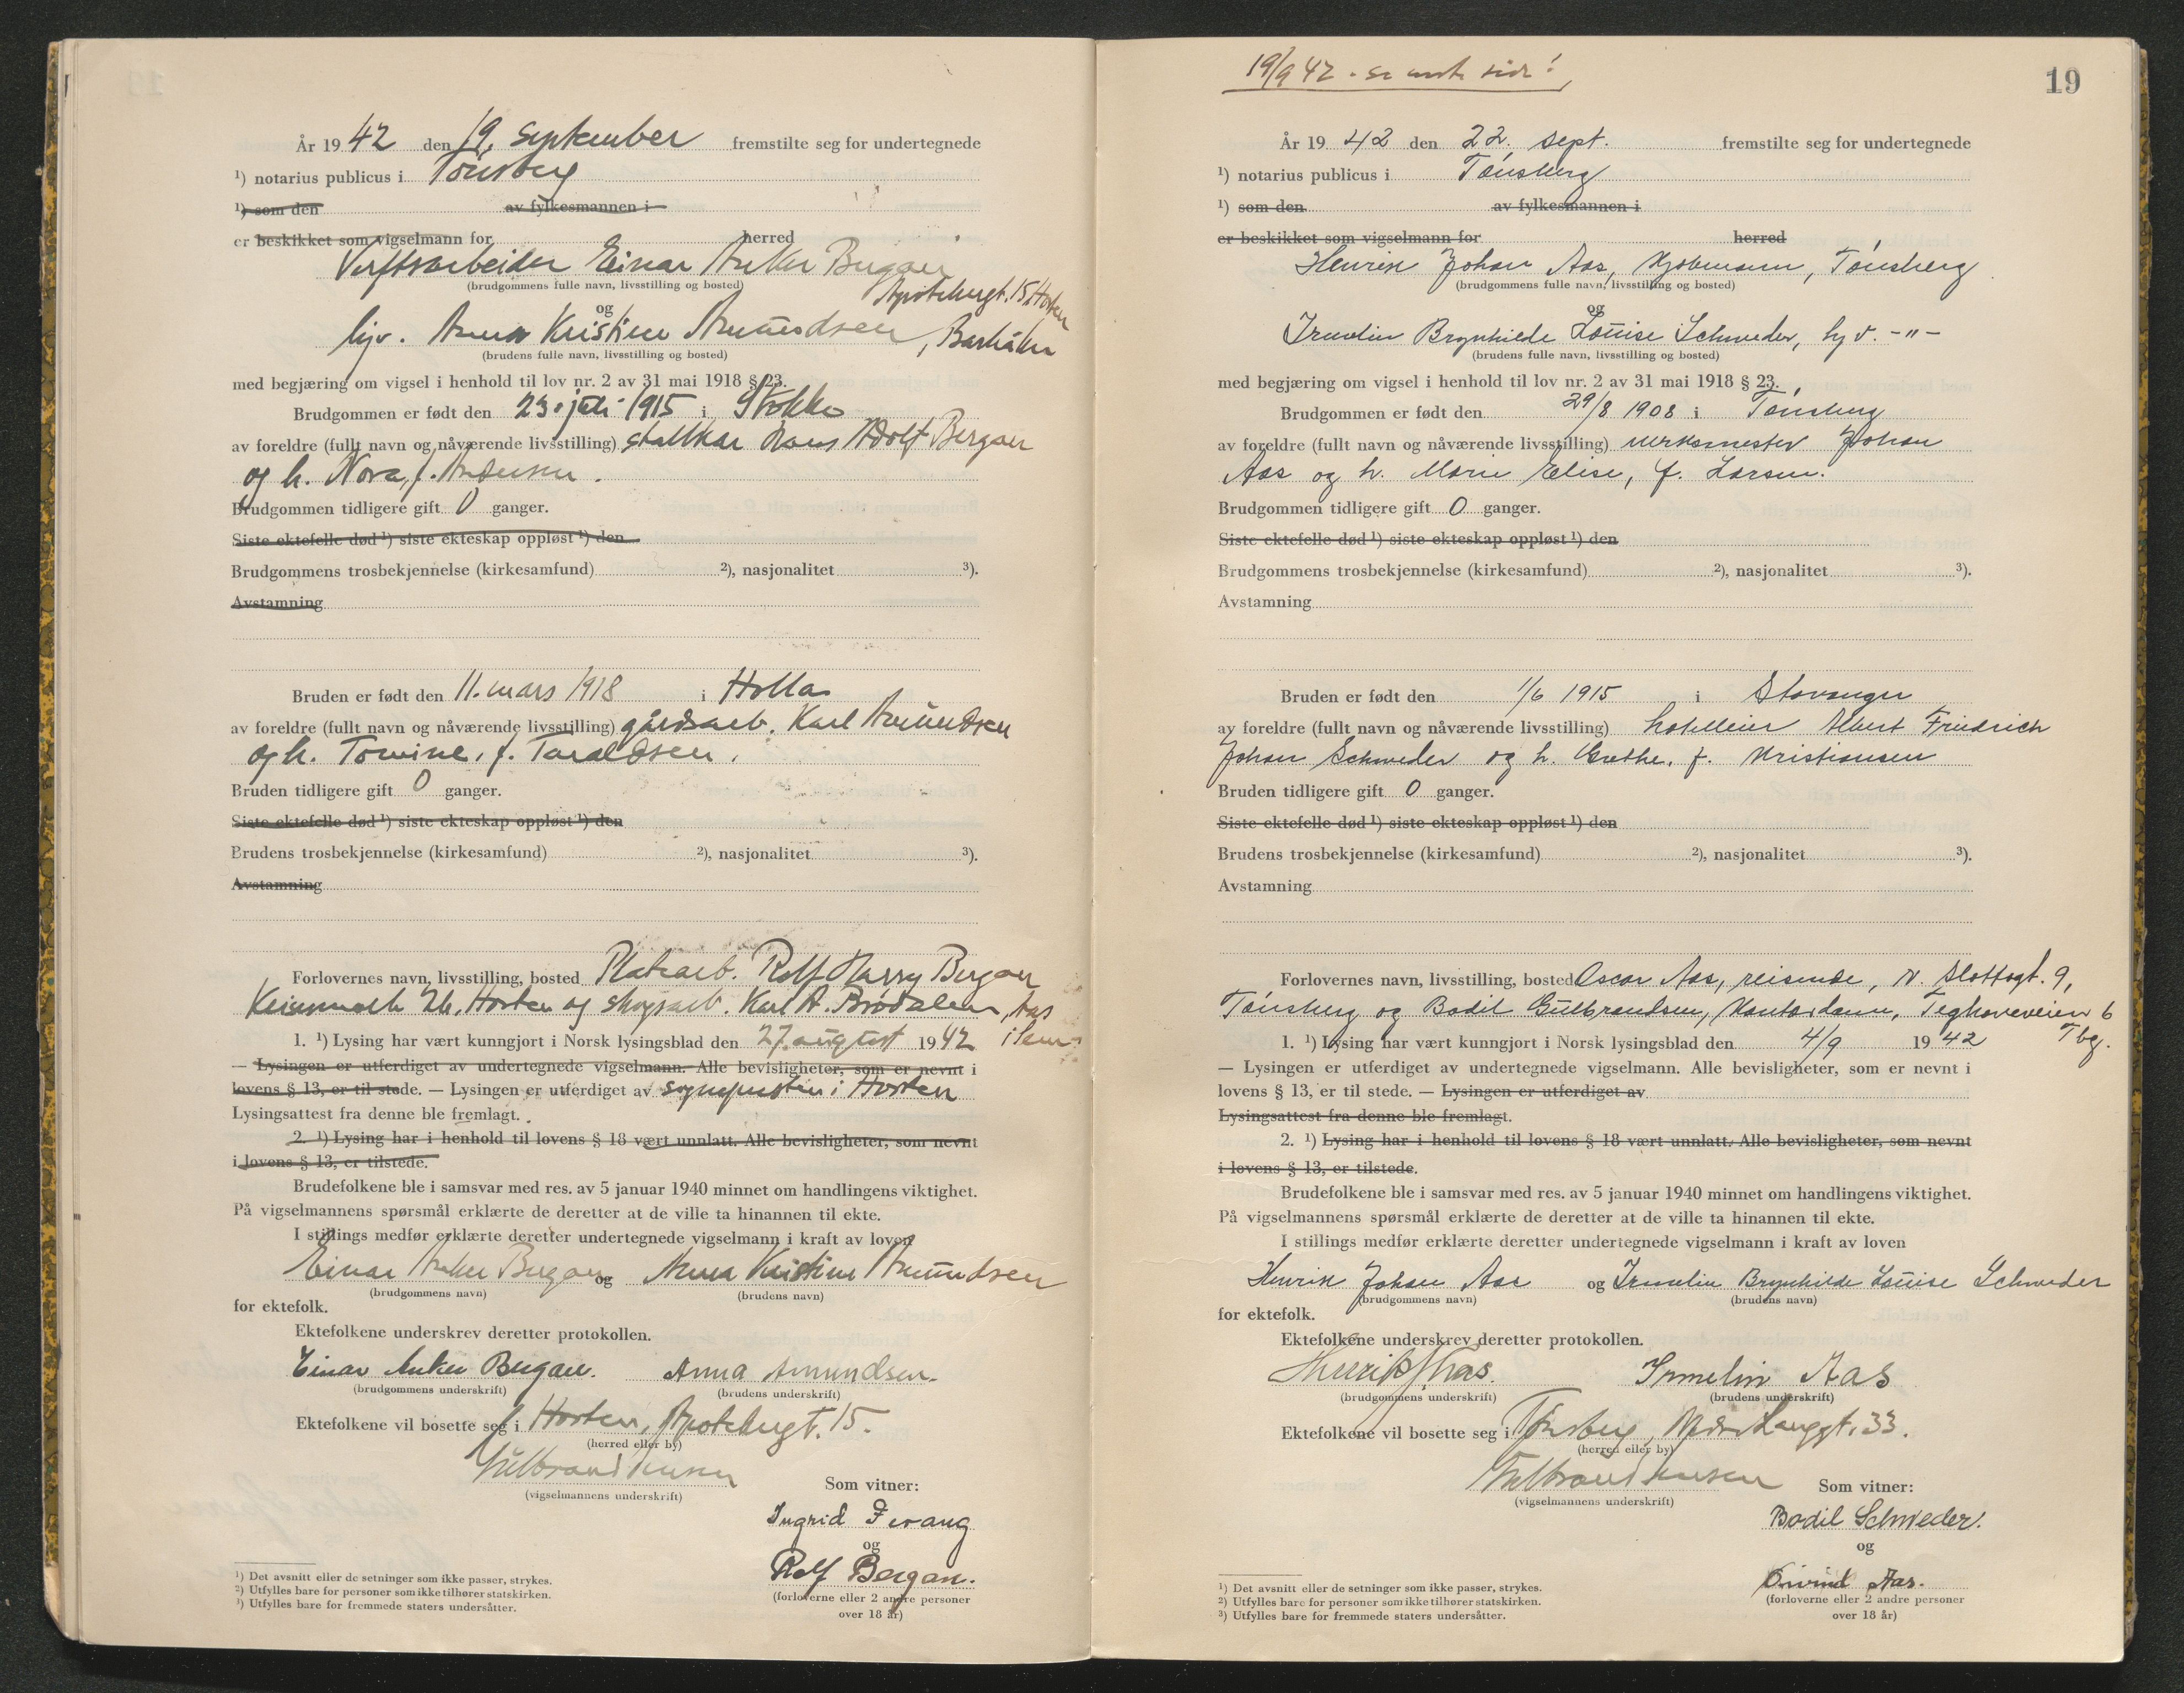 År 1942 den 19. september fremstilte seg for undertegnede
¹) notarius publicus i Tönsberg
¹) som den av fylkesmannen i
er beskikket som vigselmann for herred
Verftsarbeider Einar Anker Bergan
Apotekergt. 15, Horten
(brudgommens fulle navn, livsstilling og bosted)
og
hjv. Anna Kristine Amundsen, Barkåker
(brudens fulle navn, livsstilling og bosted)
med begjæring om vigsel i henhold til lov nr. 2 av 31 mai 1918 § 23.
Brudgommen er født den 23. juli 1915 i Stokke
av foreldre (fullt navn og nåværende livsstilling) stallkar Hans Adolf Bergan
og h. Nora, f. Andersen.
Brudgommen tidligere gift 0 ganger.
Siste ektefelle død ¹) siste ekteskap oppløst ¹) den
Brudgommens trosbekjennelse (kirkesamfund) ²), nasjonalitet ³).
Avstamning
Bruden er født den 11. mars 1918 i Holla
av foreldre (fullt navn og nåværende livsstilling) gårdsarb. Karl Amundsen
og h. Tomine, f. Taraldsen.
Bruden tidligere gift 0 ganger.
Siste ektefelle død ¹) siste ekteskap oppløst ¹) den
Brudens trosbekjennelse (kirkesamfund) ²), nasjonalitet ³).
Avstamning
Forlovernes navn, livsstilling, bosted Platearb. Rolf Harry Bergan
Horten og skogsarb. Karl A. Brødalen, Aas
1. ¹) Lysing har vært kunngjort i Norsk lysingsblad den 27. august 1942 i Sem.
— Lysingen er utferdiget av undertegnede vigselmann. Alle bevisligheter, som er nevnt i
lovens § 13, er til stede. — Lysingen er utferdiget av sognepresten i Horten
Lysingsattest fra denne ble fremlagt.
2. ¹) Lysing har i henhold til lovens § 18 vært unnlatt. Alle bevisligheter, som nevnt
i lovens § 13, er tilstede.
Brudefolkene ble i samsvar med res. av 5 januar 1940 minnet om handlingens viktighet.
På vigselmannens spørsmål erklærte de deretter at de ville ta hinannen til ekte.
I stillings medfør erklærte deretter undertegnede vigselmann i kraft av loven
Einar Anker Bergan og Anna Kristine Amundsen
(brudgommens navn) (brudens navn)
for ektefolk.
Ektefolkene underskrev deretter protokollen.
Einar Anker Bergan. Anna Amundsen.
(brudgommens underskrift) (brudens underskrift)
Ektefolkene vil bosette seg i Horten, Apotekergt. 15.
(herred eller by)
(vigselmannens underskrift)
Som vitner:
Ingrid Fevang
og
Rolf Bergan.
(forloverne eller 2 andre personer
over 18 år)
¹) Det avsnitt eller de setninger som ikke passer, strykes.
²) Utfylles bare for personer som ikke tilhører statskirken.
³) Utfylles bare for fremmede staters undersåtter.
19/9 42 - se neste side!
19
År 1942 den 22. sept. fremstilte seg for undertegnede
¹) notarius publicus i Tönsberg
¹) som den av fylkesmannen i
er beskikket som vigselmann for herred
Henrik Johan Aas, kjöbmann, Tönsberg
(brudgommens fulle navn, livsstilling og bosted)
og
Irmelin Brynhilde Louise Schweder, hj v. -"-
(brudens fulle navn, livsstilling og bosted)
med begjæring om vigsel i henhold til lov nr. 2 av 31 mai 1918 § 23.
Brudgommen er født den 29/8 1908 i Tönsberg
av foreldre (fullt navn og nåværende livsstilling) verksmester Johan
Aas og h. Marie Elise, f. Larsen.
Brudgommen tidligere gift 0 ganger.
Siste ektefelle død ¹) siste ekteskap oppløst ¹) den
Brudgommens trosbekjennelse (kirkesamfund) ²), nasjonalitet ³).
Avstamning
Bruden er født den 1/6 1915 i Stavanger
av foreldre (fullt navn og nåværende livsstilling) hotelleier Albert Friedrich
Johan Schweder og h. Grethe, f. Kristiansen
Bruden tidligere gift 0 ganger.
Siste ektefelle død ¹) siste ekteskap oppløst ¹) den
Brudens trosbekjennelse (kirkesamfund) ²), nasjonalitet ³).
Avstamning
Forlovernes navn, livsstilling, bosted Oscar Aas, reisende, N. Slottsgt. 9,
Tönsberg og Bodil Gulbrandsen, kontordame, Teghoveveien 6
Tbg.
1. ¹) Lysing har vært kunngjort i Norsk lysingsblad den 4/9 1942
— Lysingen er utferdiget av undertegnede vigselmann. Alle bevisligheter, som er nevnt i
lovens § 13, er til stede. — Lysingen er utferdiget av
Lysingsattest fra denne ble fremlagt.
2. ¹) Lysing har i henhold til lovens § 18 vært unnlatt. Alle bevisligheter, som nevnt
i lovens § 13, er tilstede.
Brudefolkene ble i samsvar med res. av 5 januar 1940 minnet om handlingens viktighet.
På vigselmannens spørsmål erklærte de deretter at de ville ta hinannen til ekte.
I stillings medfør erklærte deretter undertegnede vigselmann i kraft av loven
Henrik Johan Aas og Irmelin Brynhilde Louise Schweder
(brudgommens navn) (brudens navn)
for ektefolk.
Ektefolkene underskrev deretter protokollen.
Henrik J Aas. Irmelin Aas
(brudgommens underskrift) (brudens underskrift)
Ektefolkene vil bosette seg i Tönsberg, Nedre Langgt. 33.
(herred eller by)
(vigselmannens underskrift)
Som vitner:
Bodil Schweder.
og
Öivind Aas.
(forloverne eller 2 andre personer
over 18 år)
¹) Det avsnitt eller de setninger som ikke passer, strykes.
²) Utfylles bare for personer som ikke tilhører statskirken.
³) Utfylles bare for fremmede staters undersåtter.